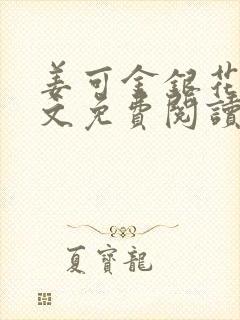 姜可金銀花
文免費閱讀
夏寶龍